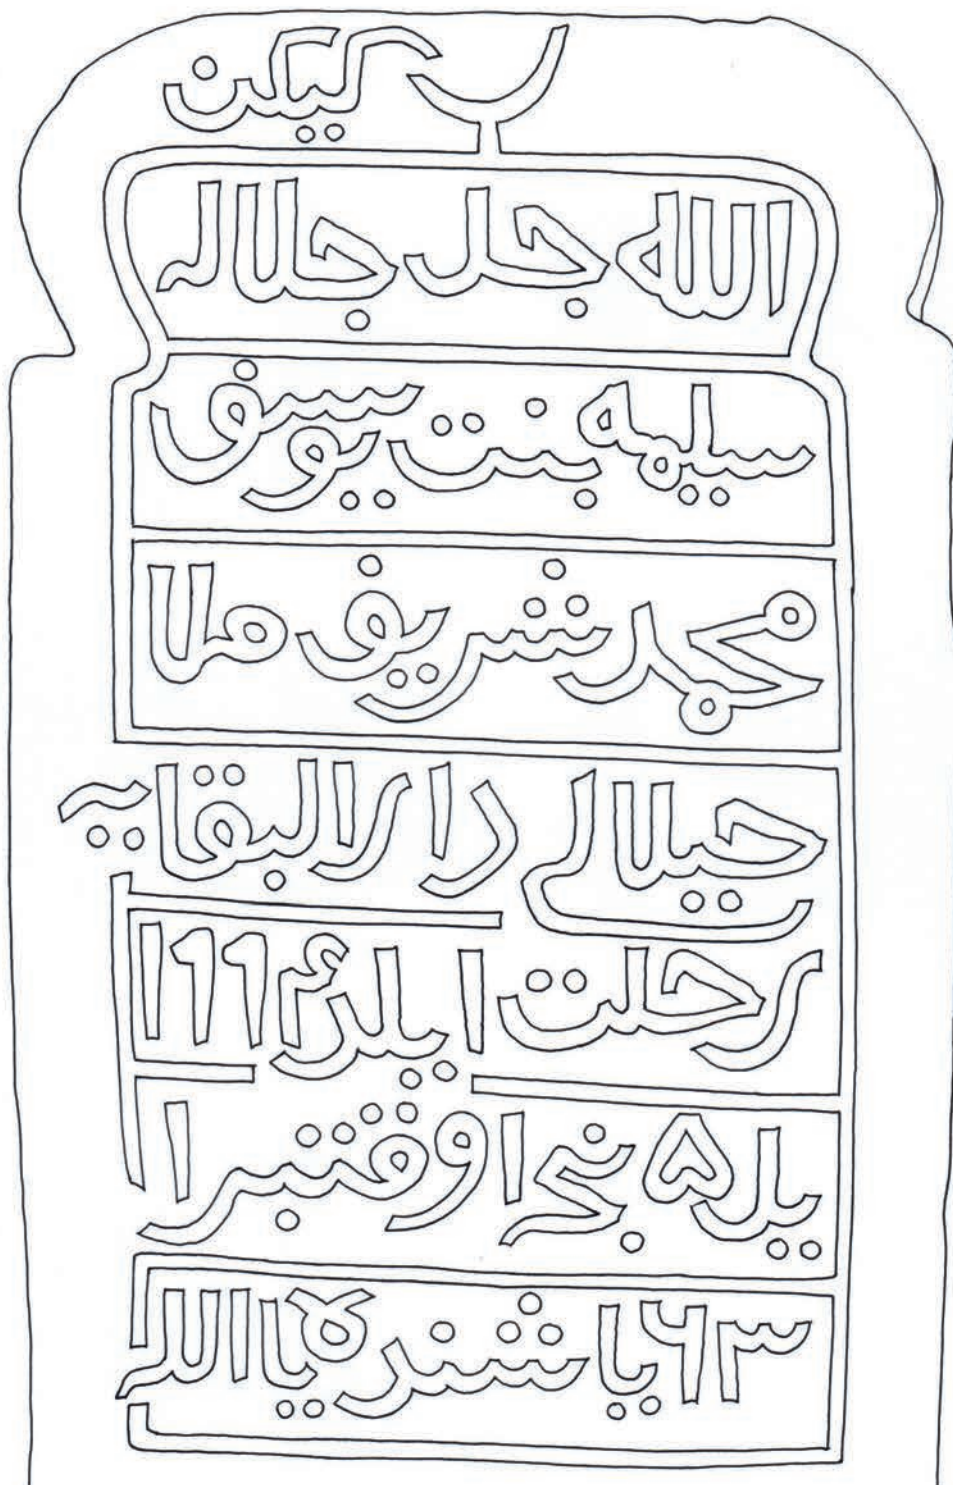 الله جل جلاله
سليمه بنت يوسف
محمد شريف ملا
حيلالى دار البقايه
رحلت ايلدى ۱۹۹۴
يلد ۵ نجى اوقتبردا
۶۳ ياشنده يا الله